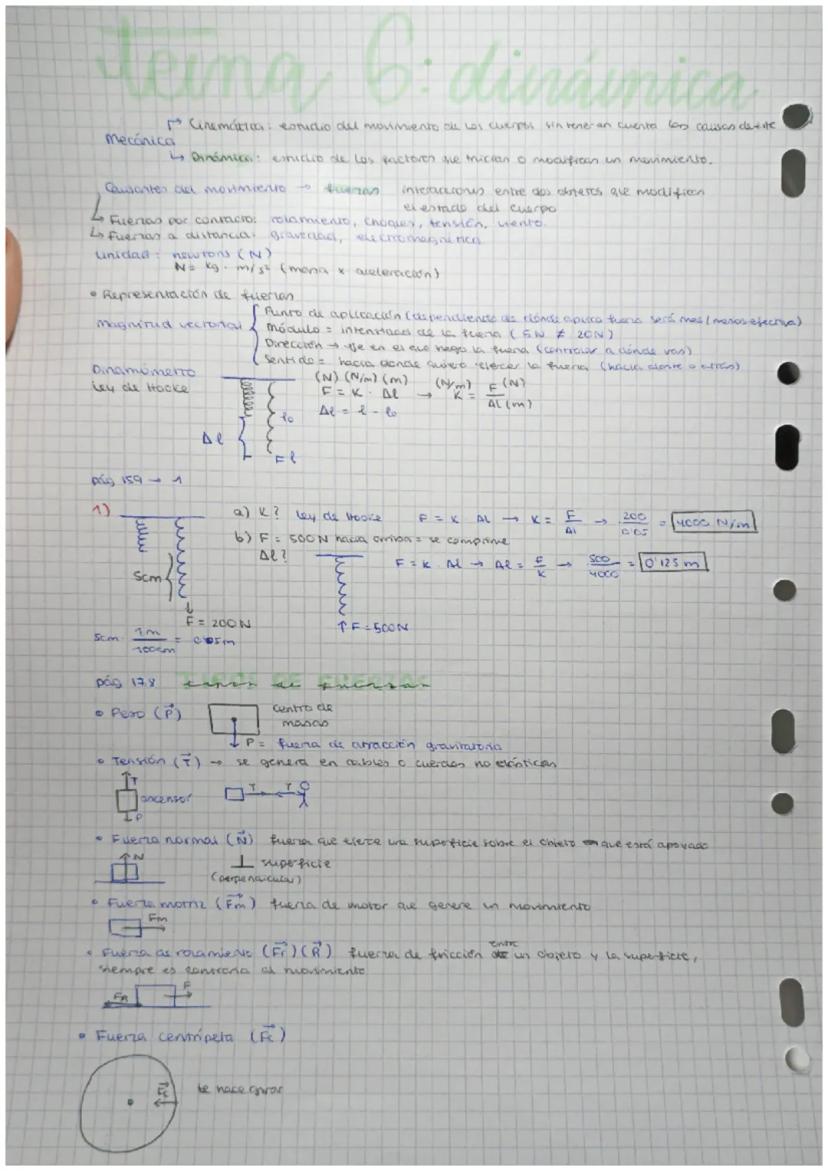 Tema 6: dinámica
↱ Cinemática: estudio del movimiento de los cuerpos sin tener en cuenta las causas de este
Mecánica
↳ Dinámica: estudio de los factores que inician o modifican un movimiento.
Causantes del movimiento → fuerzas interacciones entre dos objetos que modifican
el estado del cuerpo
↳ Fuerzas por contacto: rozamiento, choques, tensión, viento.
↳ Fuerzas a distancia: gravedad, electromagnética
unidad: newtons (N)
N = kg · m/s² (masa x aceleración)
• Representación de fuerzas
Punto de aplicación (dependiendo de dónde aplico fuerza será mas/menos efectiva)
Magnitud vectorial
Módulo = intensidad de la fuerza (5N ≠ 20N)
Dirección → eje en el que hago la fuerza (controlar a dónde van)
Sentido = hacia donde quiero ejercer la fuerza (hacia delante o atrás)
Dinamómetro
Ley de Hooke
(N) (N/m) (m)
F = K · Δl → (N/m) K = F (N) / Δl (m)
Δl = l - l₀
l₀
Δl
F l
pág 159 → 1
1) a) K? Ley de Hooke F = K · Δl → K = F/Δl → 200/0'05 = 4000 N/m
b) F = 500N hacia arriba = se comprime
Δl? F = K · Δl → Δl = F/K → 500/4000 = 0'125 m
5cm
F = 200N
↑F = 500N
5cm · 1m/100cm = 0'05m
pág 178 TIPOS DE FUERZAS
• Peso (P⃗) centro de
masas
↓ P = fuerza de atracción gravitatoria
• Tensión (T⃗) → se genera en cables o cuerdas no elásticas
T
ascensor
P
T T
• Fuerza normal (N⃗) fuerza que ejerce una superficie sobre el objeto que está apoyado
N
⊥ superficie
(perpendicular)
• Fuerza motriz (F⃗m) fuerza de motor que genere un movimiento
Fm
• Fuerza de rozamiento (F⃗r) (R⃗) fuerza de fricción entre un objeto y la superficie,
siempre es contraria al movimiento
FR F
• Fuerza centrípeta (F⃗c)
Fc
te hace girar